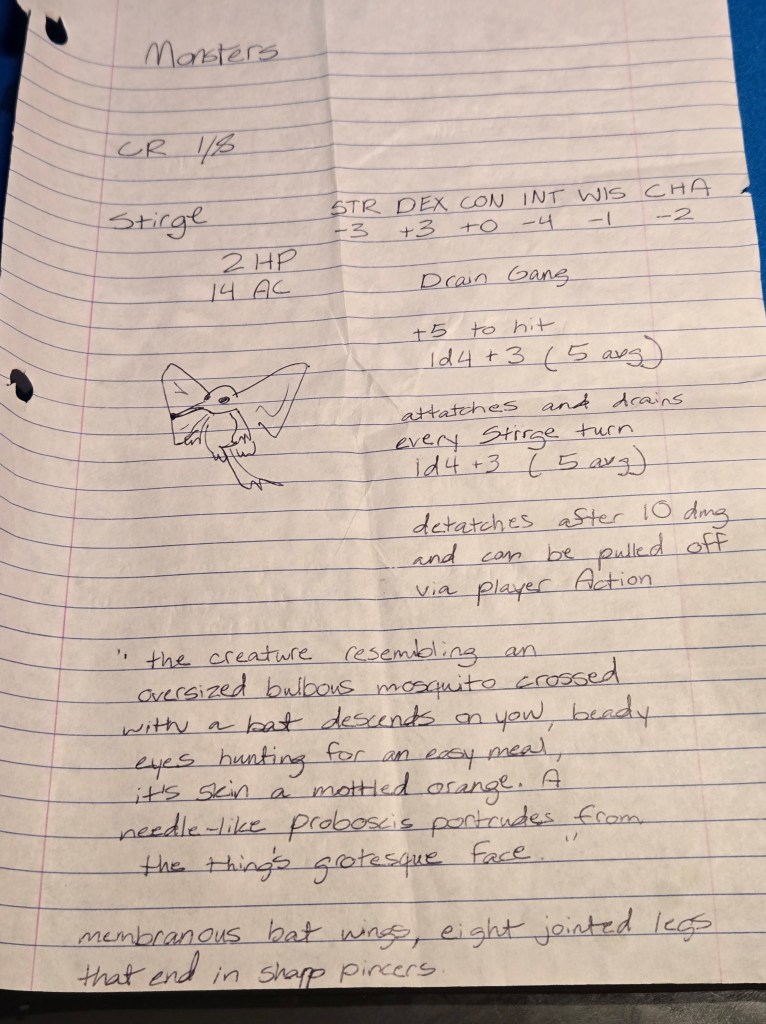 Monsters
CR 1/8
Stirge
STR DEX CON INT WIS CHA
-3 +3 +0 -4 -1 -2
2 HP
14 AC
Drain Gang
+5 to hit
1d4 + 3 (5 avg)
attatches and drains
every Stirge turn
1d4 +3 (5 avg)
detatches after 10 dmg
and can be pulled off
via player Action
" the creature resembling an
oversized bulbous mosquito crossed
with a bat descends on you, beady
eyes hunting for an easy meal,
it's skin a mottled orange. A
needle-like proboscis portrudes from
the thing's grotesque face. "
membranous bat wings, eight jointed legs
that end in sharp pincers.